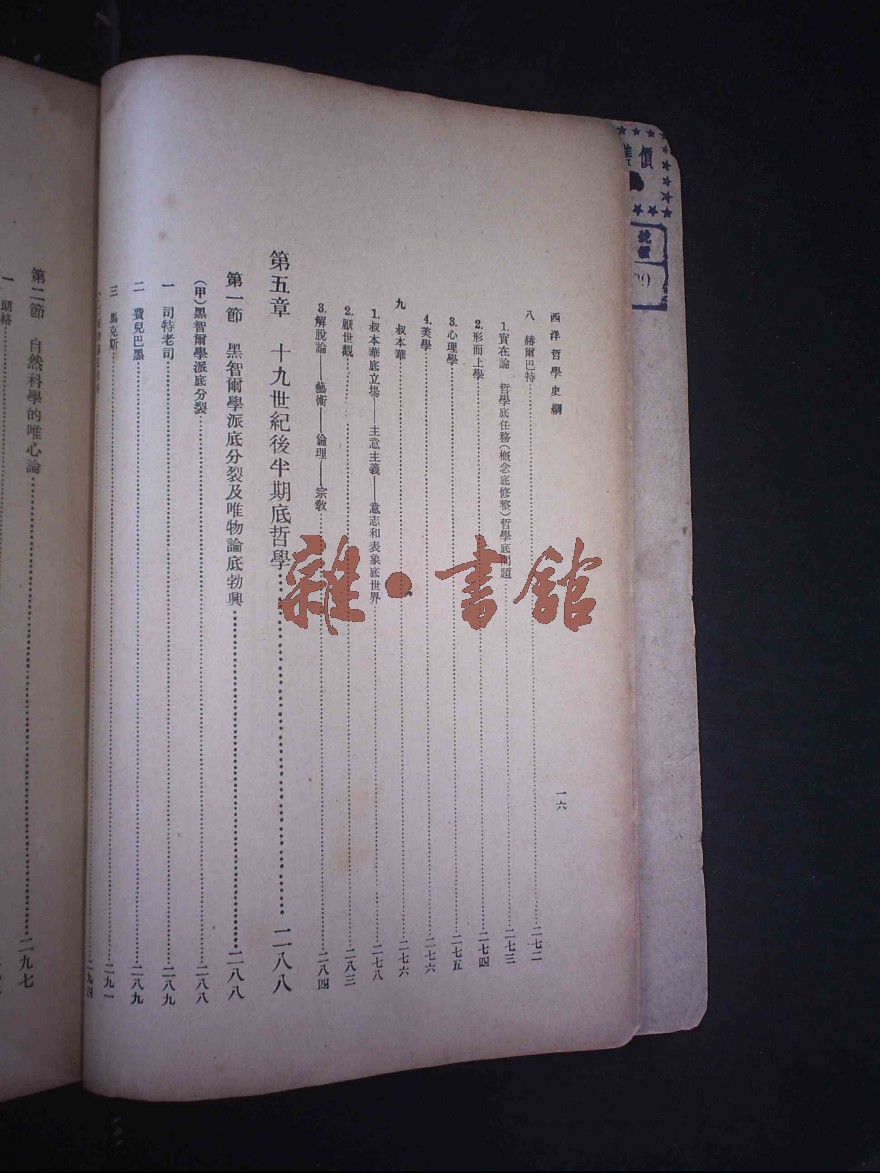 西洋哲學史綱
一六
八 赫爾巴特……二七二
1.實在論 哲學底任務(概念底修整)哲學底問題……二七三
2.形而上學……二七四
3.心理學……二七五
4.美學……二七六
九 叔本華……二七六
1.叔本華底立場——主意主義——意志和表象底世界……二七八
2.厭世觀……二八三
3.解脫論——藝術——倫理——宗教……二八四
第五章 十九世紀後半期底哲學……二八八
第一節 黑智爾學派底分裂及唯物論底勃興……二八八
(甲)黑智爾學派底分裂……二八八
一 司特老司……二八九
二 費兒巴黑……二八九
三 馬克斯……二九一
二九四
第二節 自然科學的唯心論……二九七
一
雜·書館
價
號